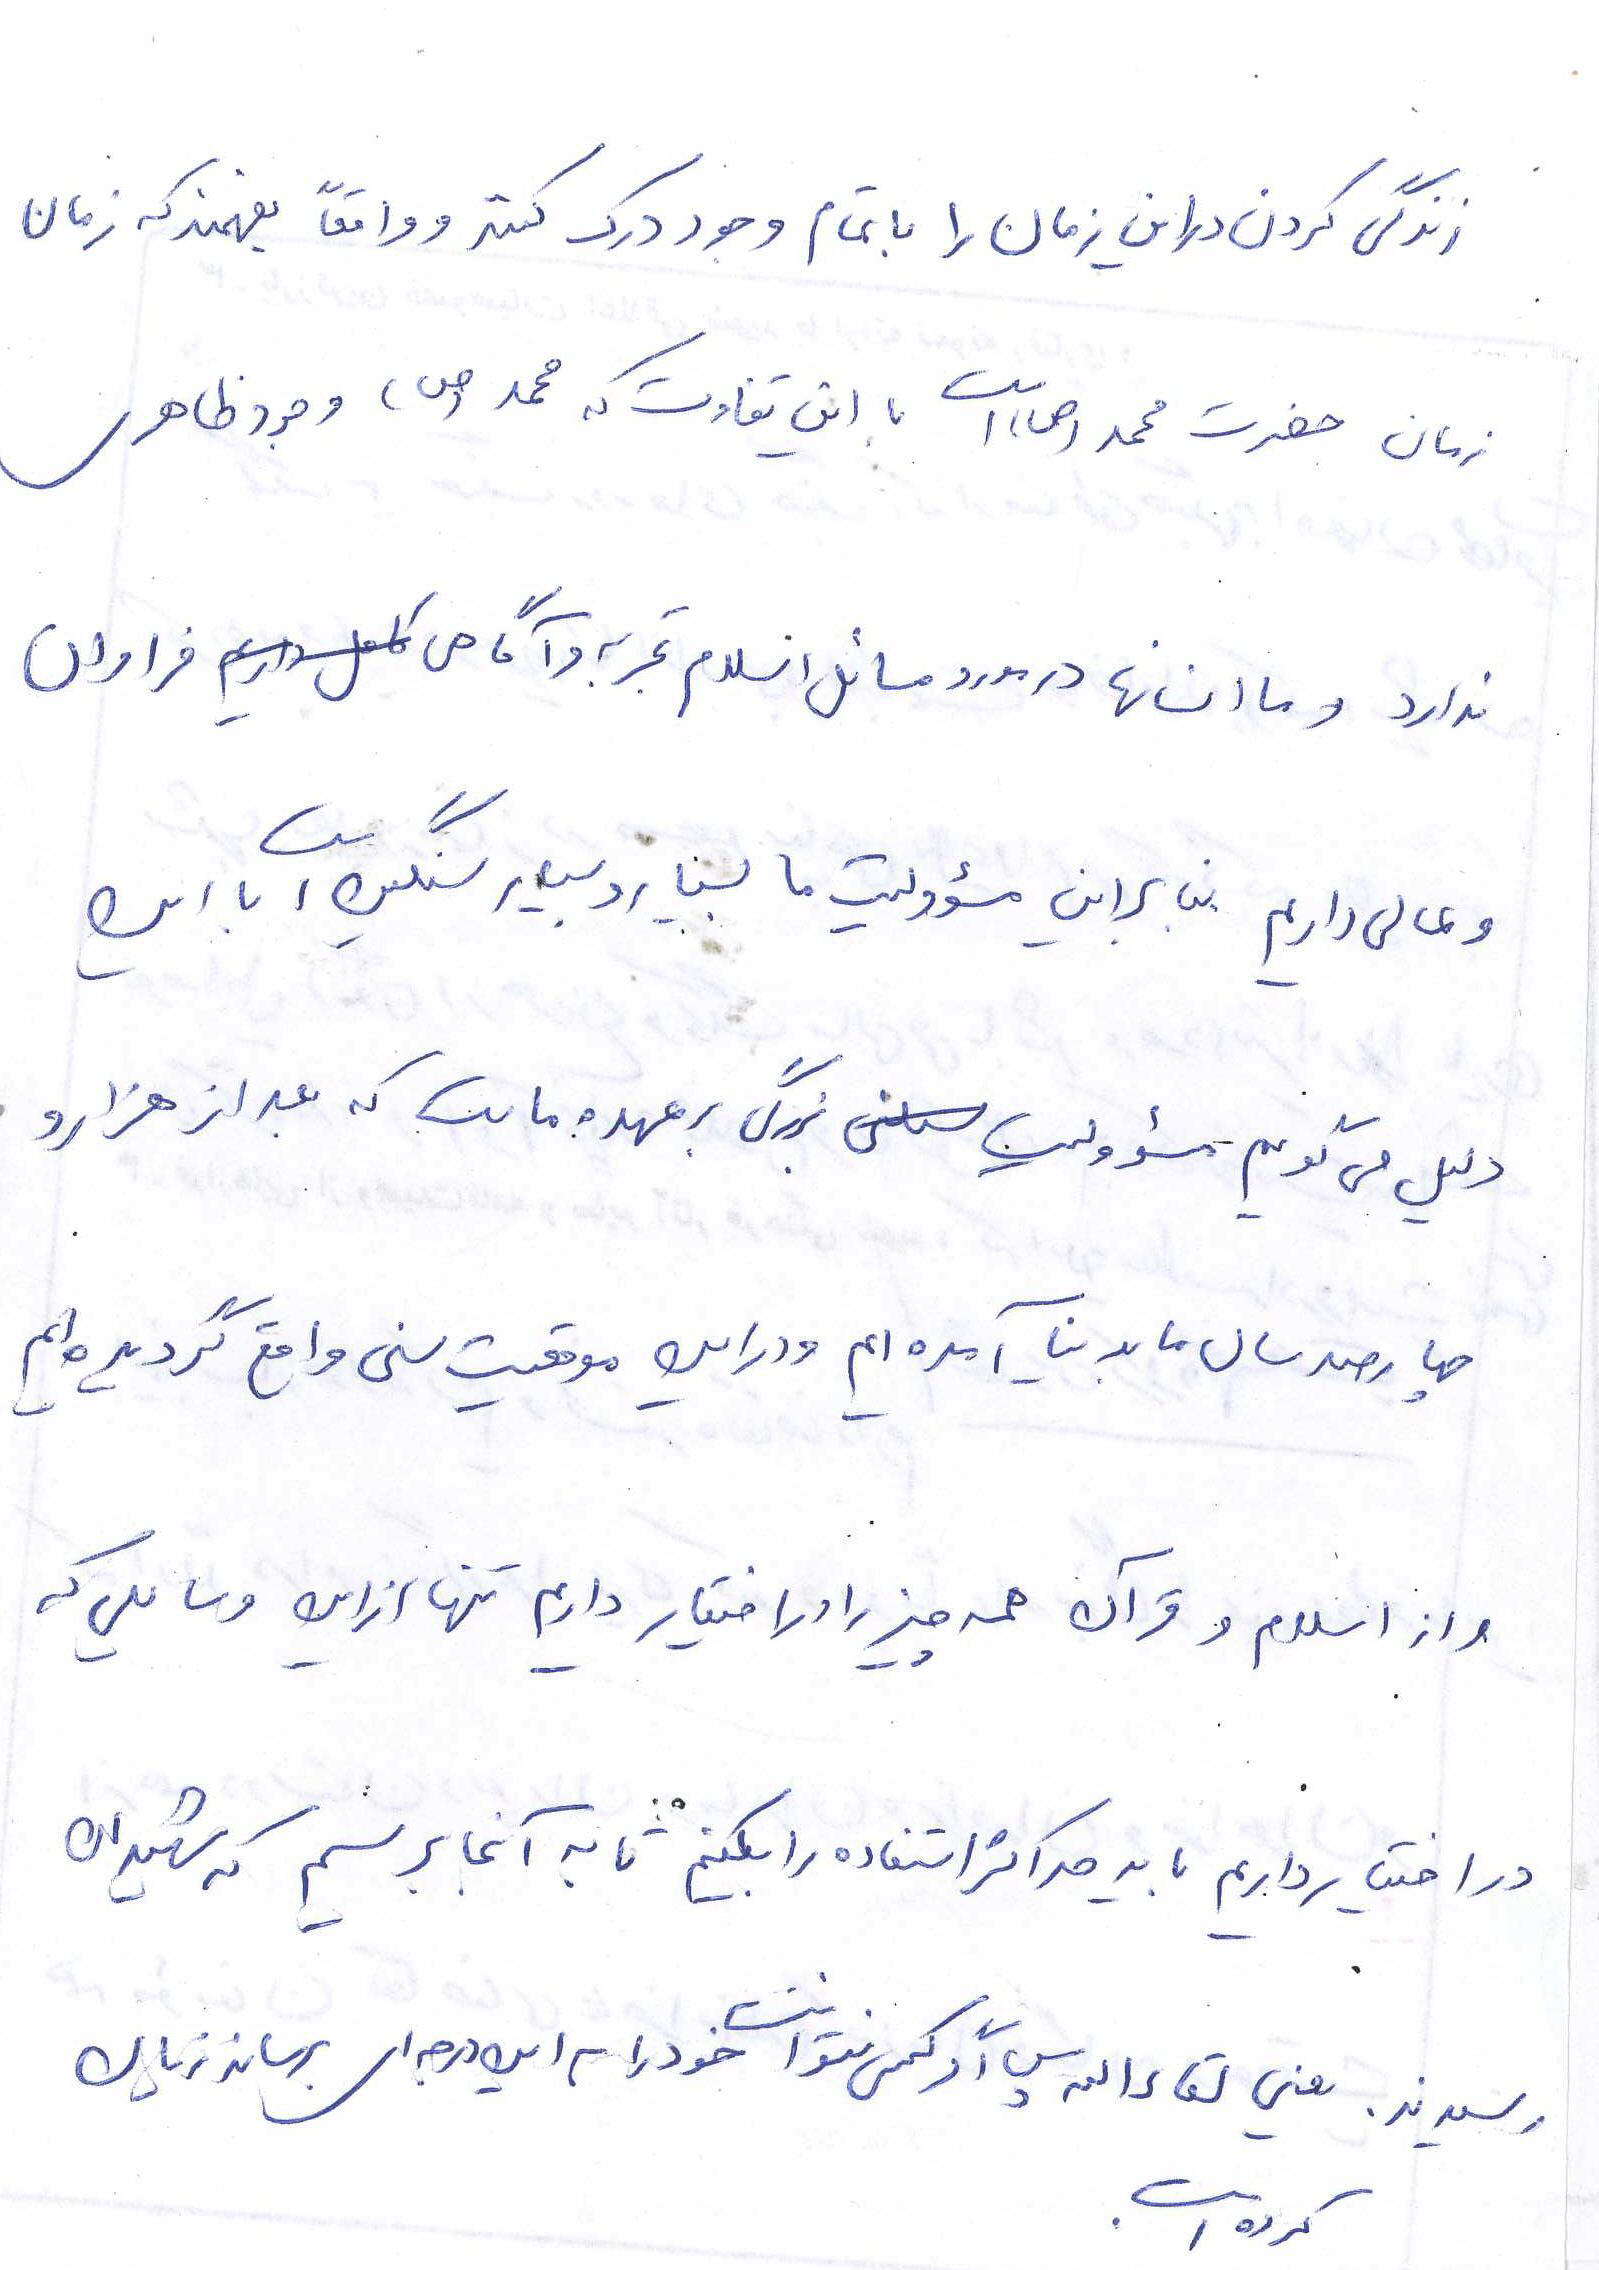 زندگی کردن در این زمان را با تمام وجود درک کنند و واقعاً بفهمند که زمان
زمان حضرت محمد (ص) است با این تفاوت که محمد (ص) وجود ظاهری
ندارد و ما انسانها در مورد مسائل اسلام تجربه و آگاهی کامل داریم فراوان
و عالی داریم بنابراین مسؤولیت ما بسیار و بسیار سنگین است با این
دلیل می گویم مسؤولیت سنگین بزرگی بر عهده ماست که بعد از هزار و
چهارصد سال ما بدنیا آمده ایم و در این موقعیت سنی واقع گردیده ایم
و از اسلام و قرآن همه چیز را در اختیار داریم تنها از این وسایلی که
در اختیار داریم باید حداکثر استفاده را بکنیم تا به آنجا برسیم که شهیدان
رسیدند. یعنی لقاء الله پس اگر کسی نتوانست خود را به این درجه ای برساند زیان
کرده است.